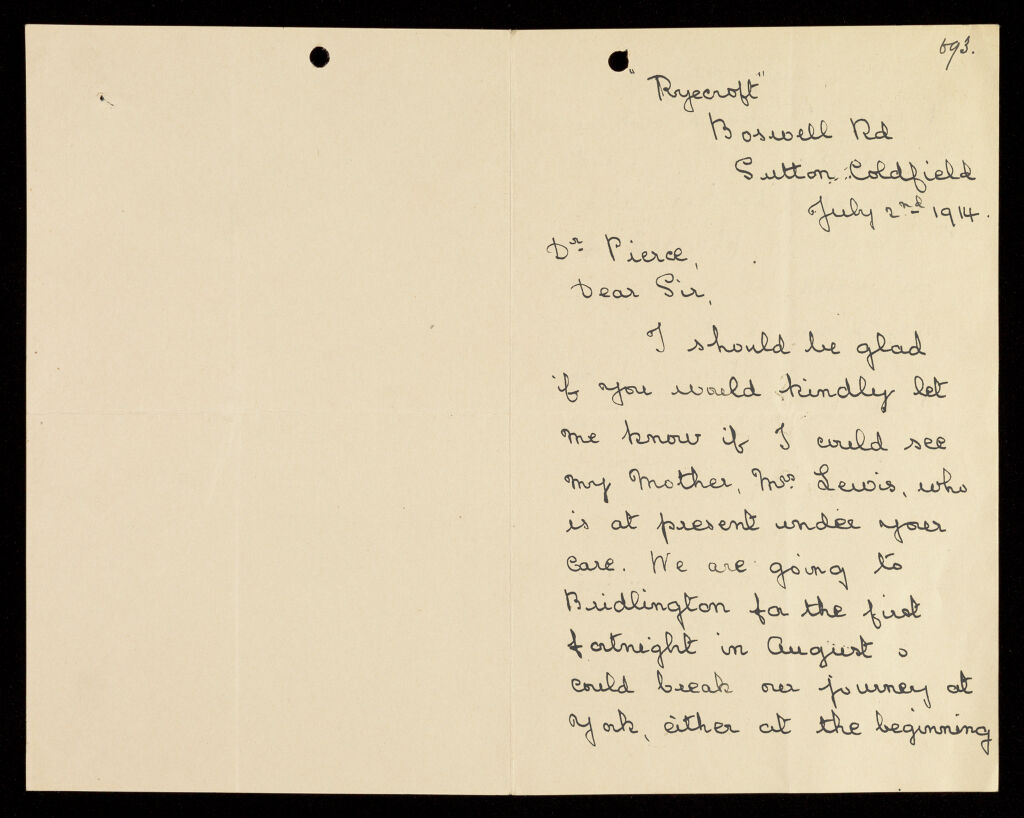 693.
"Ryecroft"
Boswell Rd
Sutton Coldfield
July 2nd 1914.
Dr Pierce,
Dear Sir,
I should be glad
if you would kindly let
me know if I could see
my Mother, Mrs Lewis, who
is at present under your
care. We are going to
Bridlington for the first
fortnight in August &
could break our journey at
York, either at the beginning